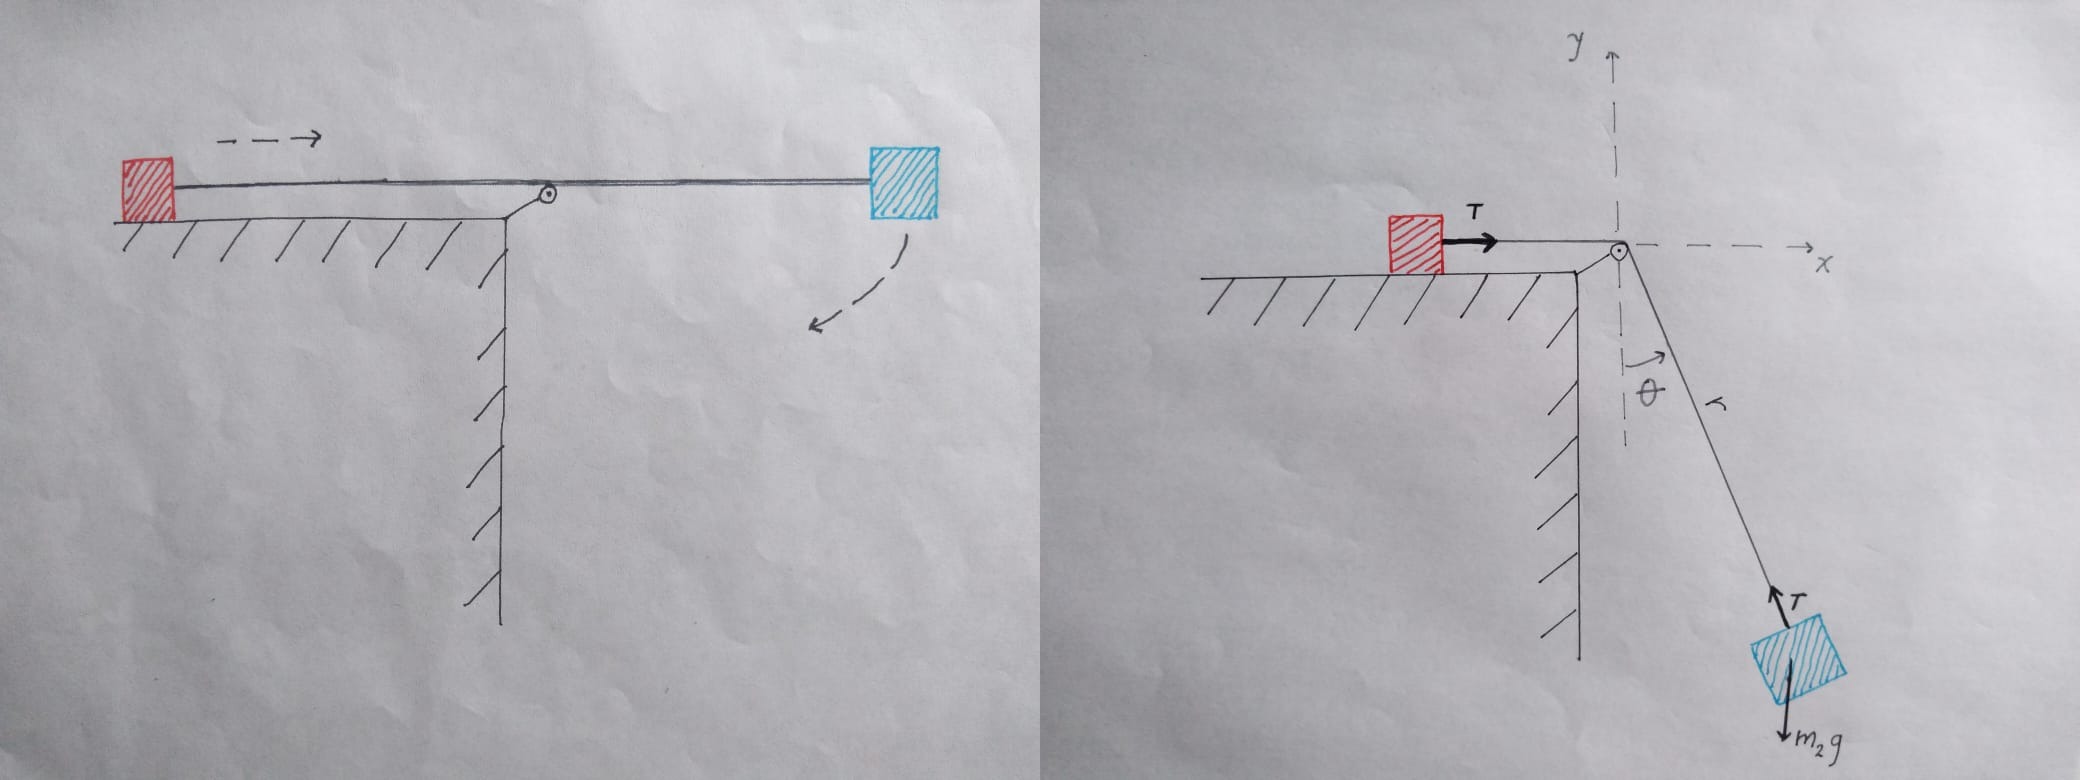 y
T
x
θ
r
T
m₂g